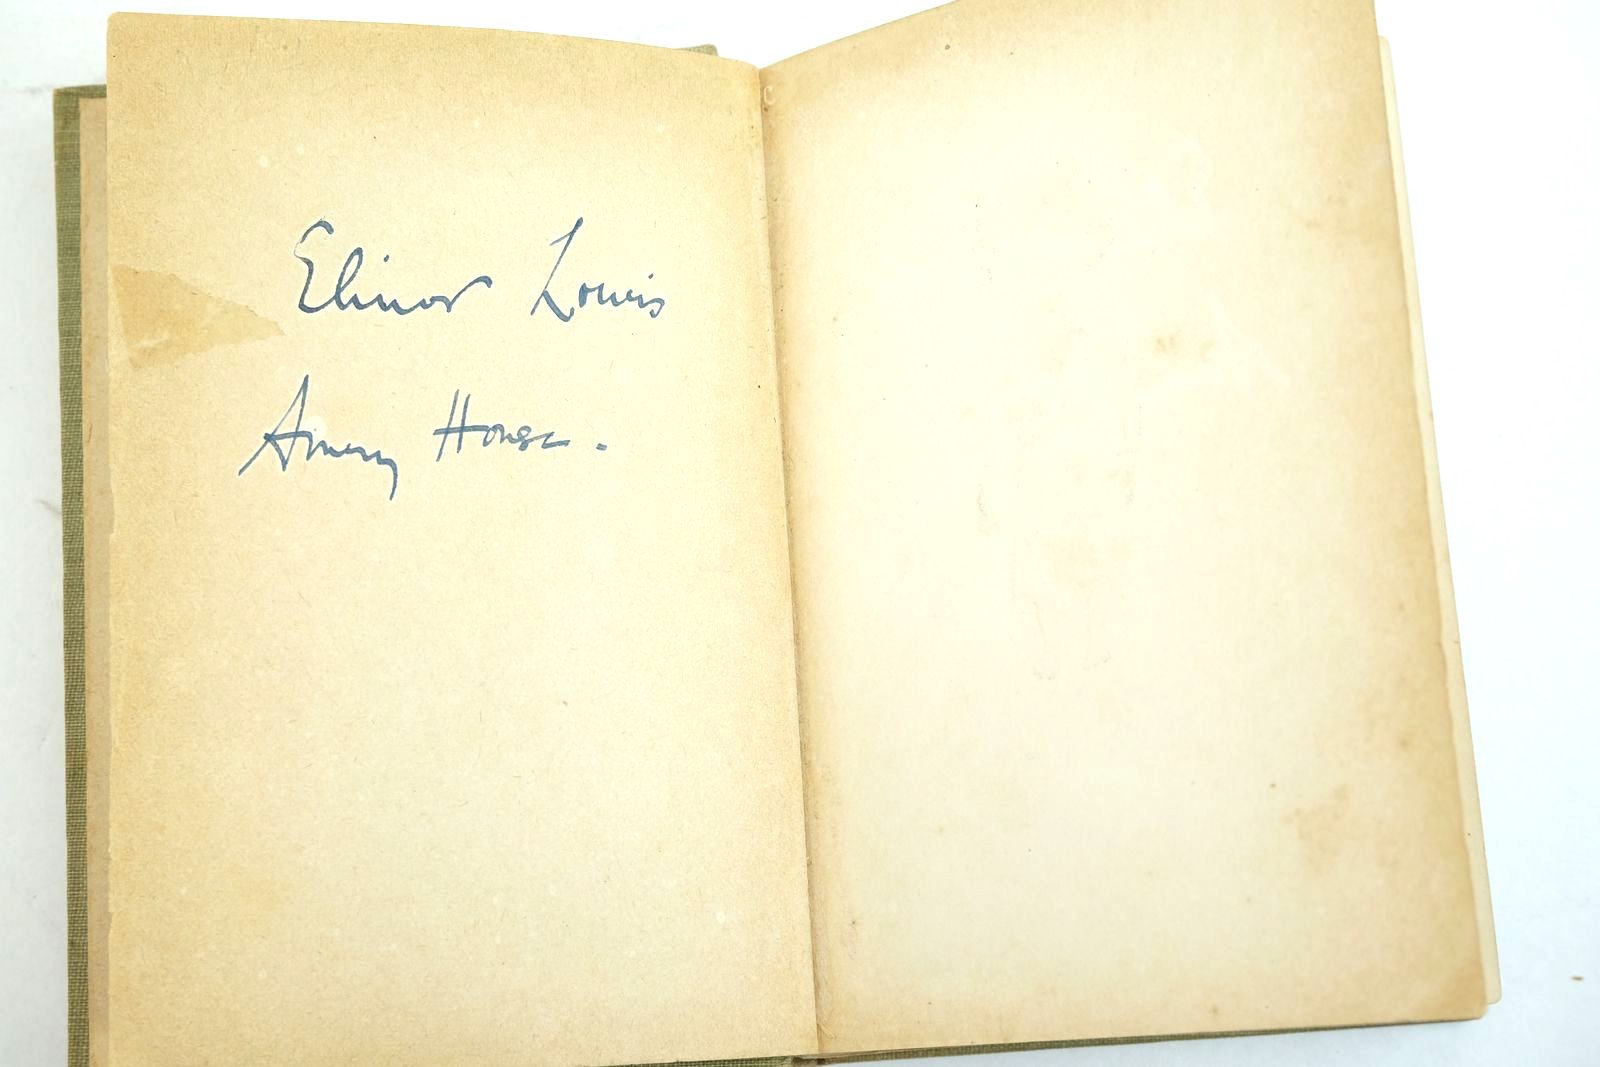 Elinor Louis
Amery House.